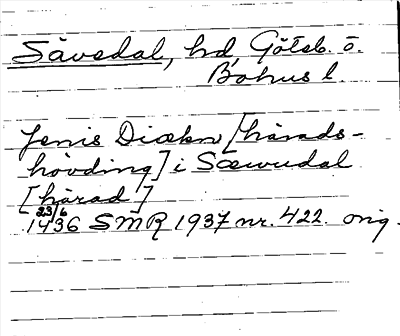 Sävedal, hd, Göteb. o.
Bohus l.
Jenis Diækn [härads-
hövding] i Sæwedal
[härad]
23/6
1436 SMR 1937 nr. 422. orig.